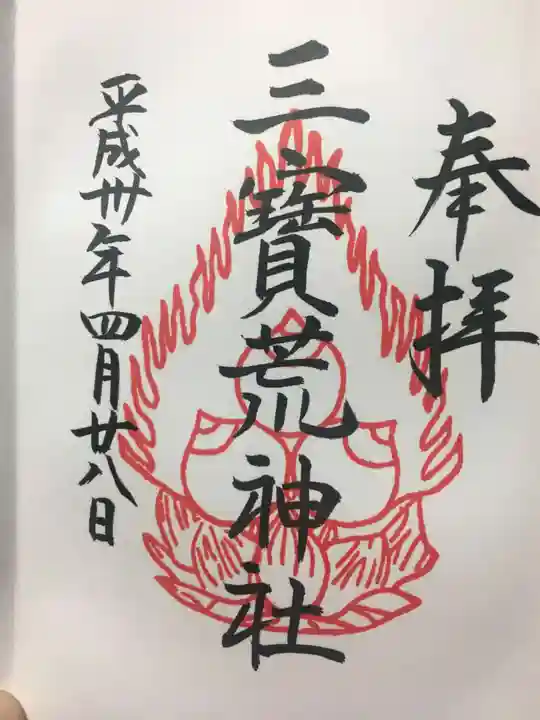 奉拝
三寳荒神社
平成卅年四月廿八日